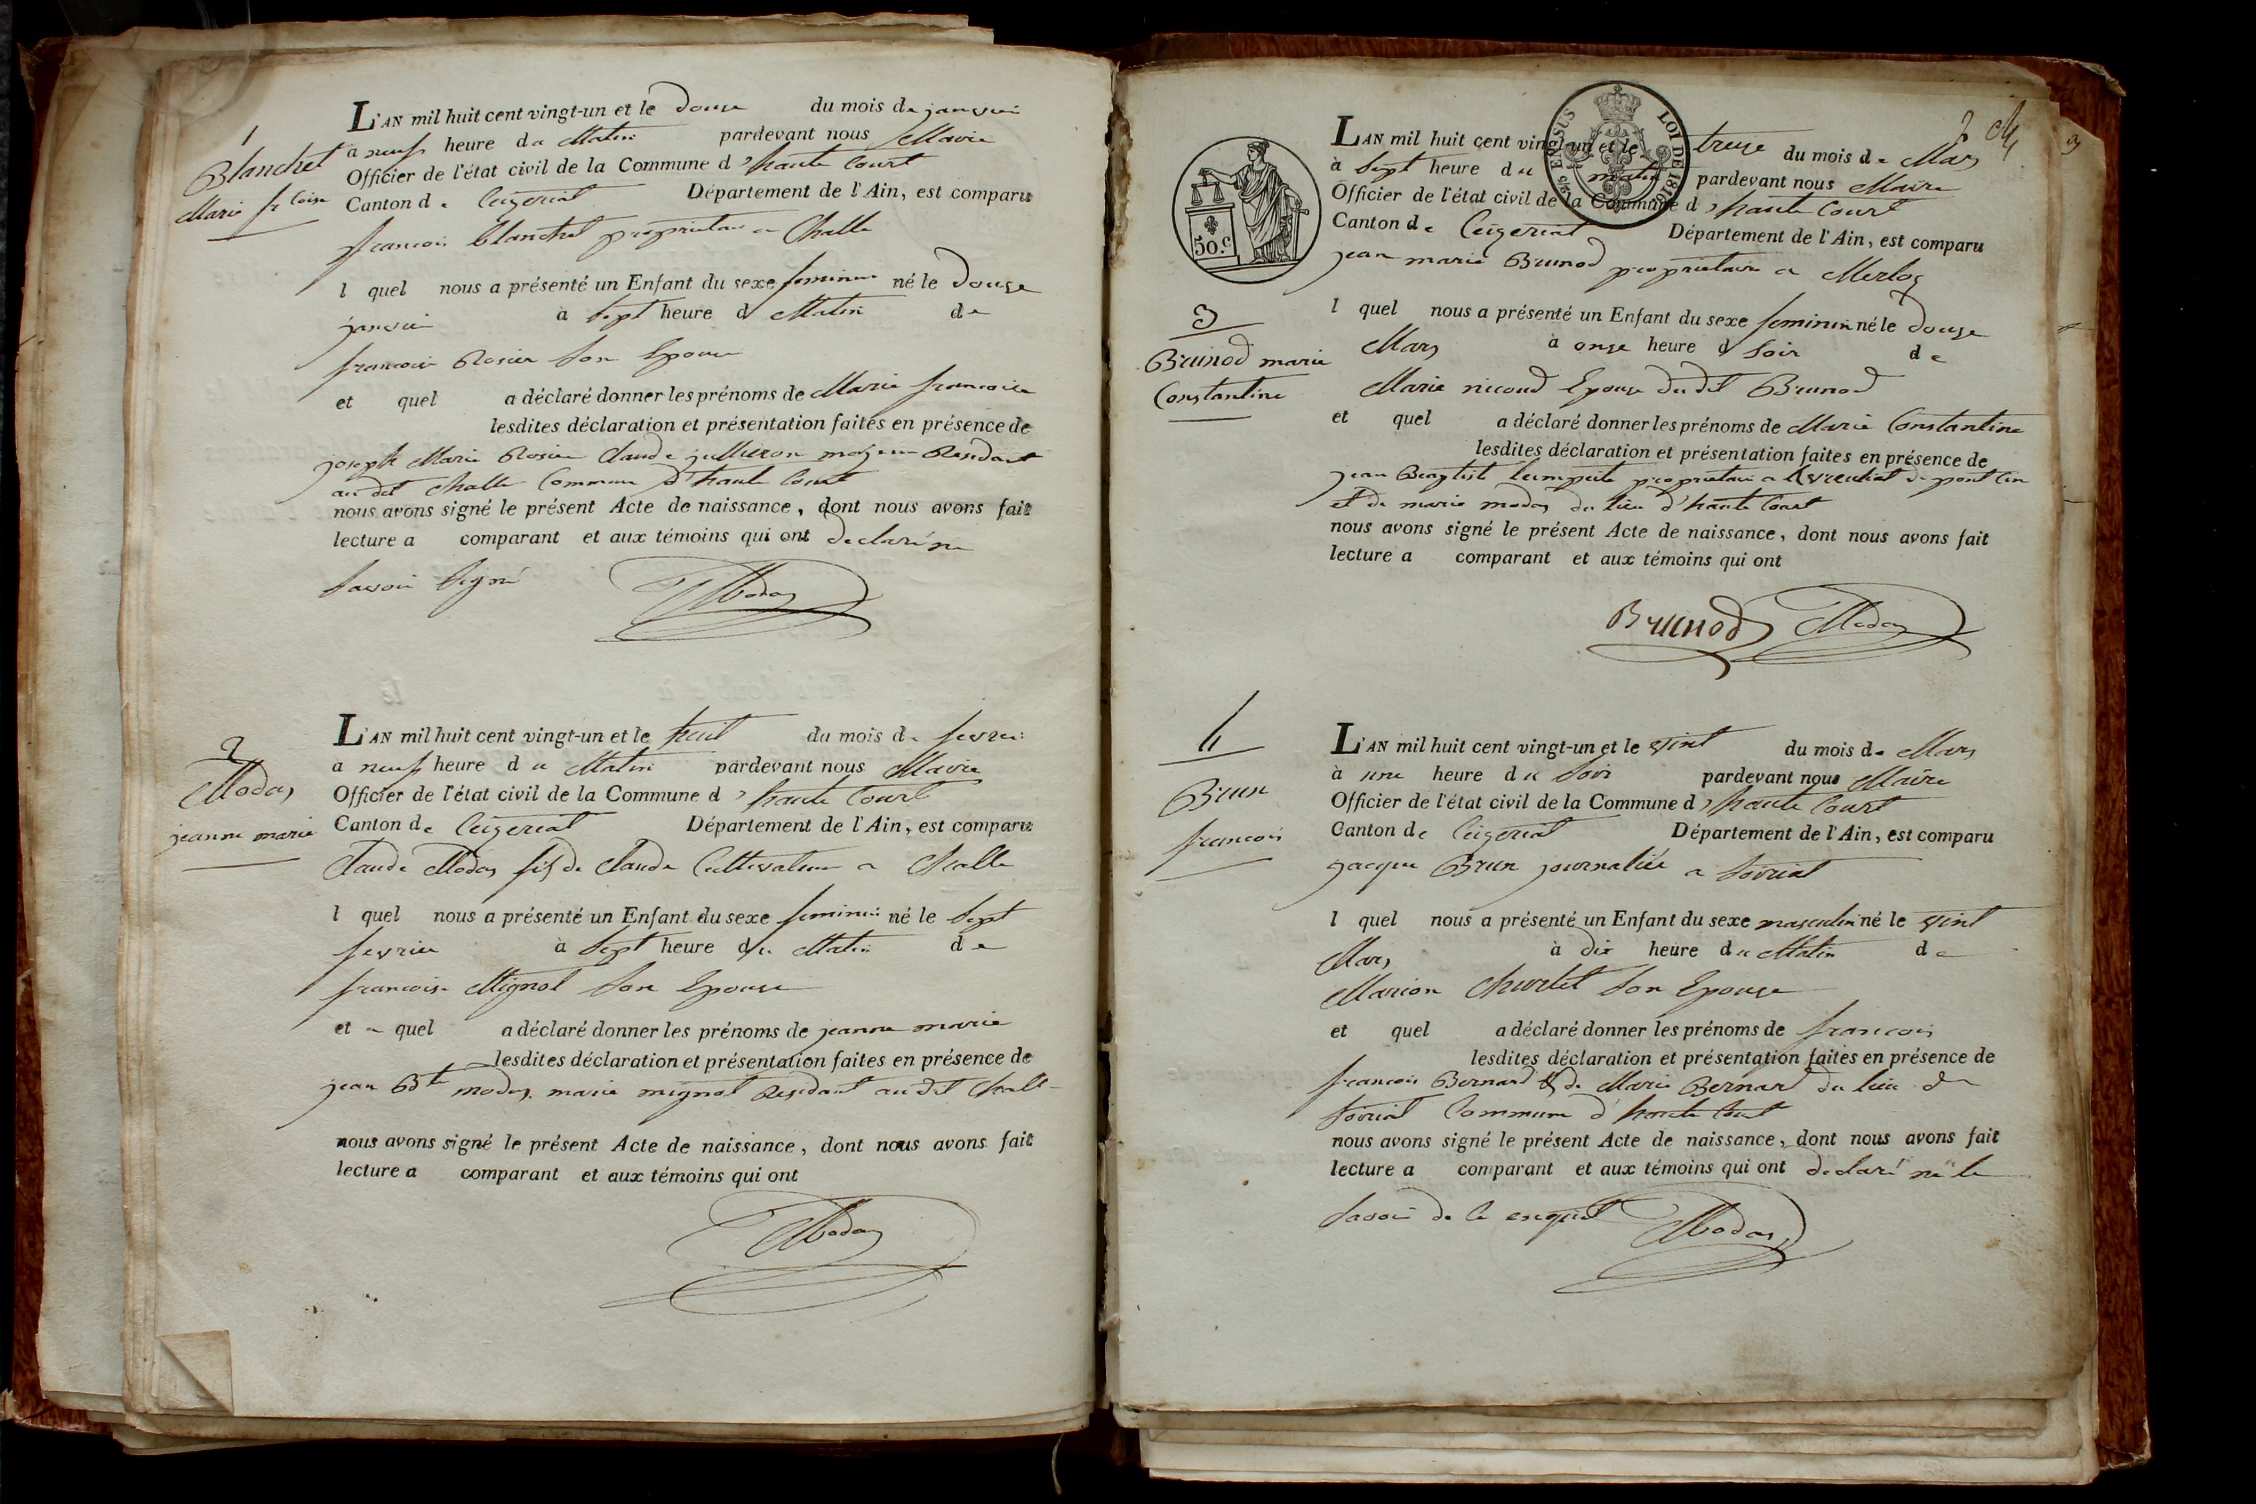 1
Blanchet
Marie fr.coise
L'AN mil huit cent vingt-un et le douze du mois de janvier
à neuf heure du Matin pardevant nous Maire
Officier de l'état civil de la Commune d'haute Court
Canton de Ceizeriat Département de l'Ain, est comparu
francois Blanchet proprietaire a Challe
l quel nous a présenté un Enfant du sexe feminin né le douze
janvier à sept heure d Matin de
francoise Rosier son Epouse
et quel a déclaré donner les prénoms de Marie francoise
lesdites déclaration et présentation faites en présence de
joseph Marie Rosier Claude jullieron majeur Residant
au dit Challe Commune d'haute Court
nous avons signé le présent Acte de naissance, dont nous avons fait
lecture a comparant et aux témoins qui ont declaré ne
savoir signé
Modas
2
Modas
jeanne marie
L'AN mil huit cent vingt-un et le huit du mois de fevrier
a neuf heure du Matin pardevant nous Maire
Officier de l'état civil de la Commune d'haute Court
Canton de Ceizeriat Département de l'Ain, est comparu
Claude Modas fils de Claude Cultivateur a Challe
l quel nous a présenté un Enfant du sexe feminin né le sept
fevrier à sept heure du Matin de
francoise Mignot son Epouse
et quel a déclaré donner les prénoms de jeanne marie
lesdites déclaration et présentation faites en présence de
jean Bte modas marie mignot Residant au dit Challe
nous avons signé le présent Acte de naissance, dont nous avons fait
lecture a comparant et aux témoins qui ont
Modas
2
3
CENS SUS
LOI DE 1816
50.c
3
Brunod marie
Constantine
L'AN mil huit cent vingt-un et le treize du mois de Mars
à sept heure du matin pardevant nous Maire
Officier de l'état civil de la Commune d'haute Court
Canton de Ceizeriat Département de l'Ain, est comparu
jean marie Brunod proprietaire a Merloz
l quel nous a présenté un Enfant du sexe feminin né le douze
Mars à onze heure d soir de
Marie nicoud Epouse du dit Brunod
et quel a déclaré donner les prénoms de Marie Constantine
lesdites déclaration et présentation faites en présence de
jean Baptiste proprietaire a de pont
et de marie modas du lieu d'haute Court
nous avons signé le présent Acte de naissance, dont nous avons fait
lecture a comparant et aux témoins qui ont
Brunod Modas
4
Brun
francois
L'AN mil huit cent vingt-un et le vint du mois de Mars
à une heure du soir pardevant nous Maire
Officier de l'état civil de la Commune d'haute Court
Canton de Ceizeriat Département de l'Ain, est comparu
jacque Brun journalier a
l quel nous a présenté un Enfant du sexe masculin né le vint
Mars à dix heure du Matin de
Marion Churlet son Epouse
et quel a déclaré donner les prénoms de francois
lesdites déclaration et présentation faites en présence de
francois Bernard & de Marie Bernard du lieu de
Commune d'haute Court
nous avons signé le présent Acte de naissance, dont nous avons fait
lecture a comparant et aux témoins qui ont declaré ne le
savoir de ce enquis
Modas